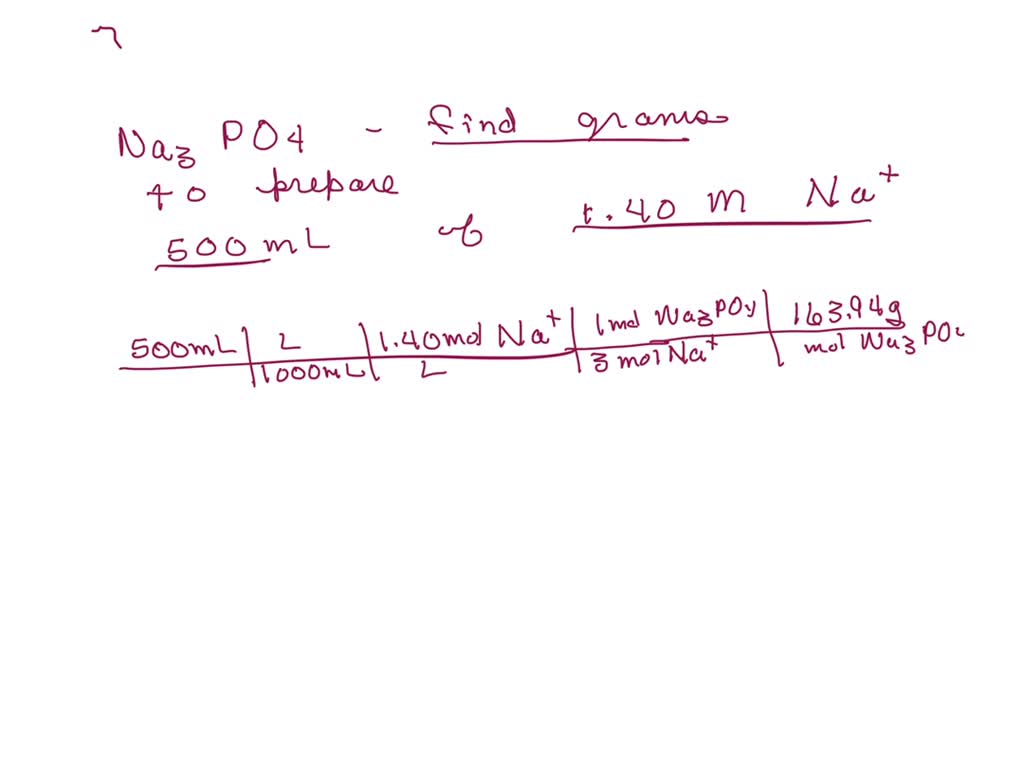 7
Na3 PO4 - find grams
to prepare
500 mL of 1.40 M Na+
500mL | L | 1.40mol Na+ | 1mol Na3PO4 | 163.94g
1000mL | L | 3 mol Na+ | mol Na3PO4